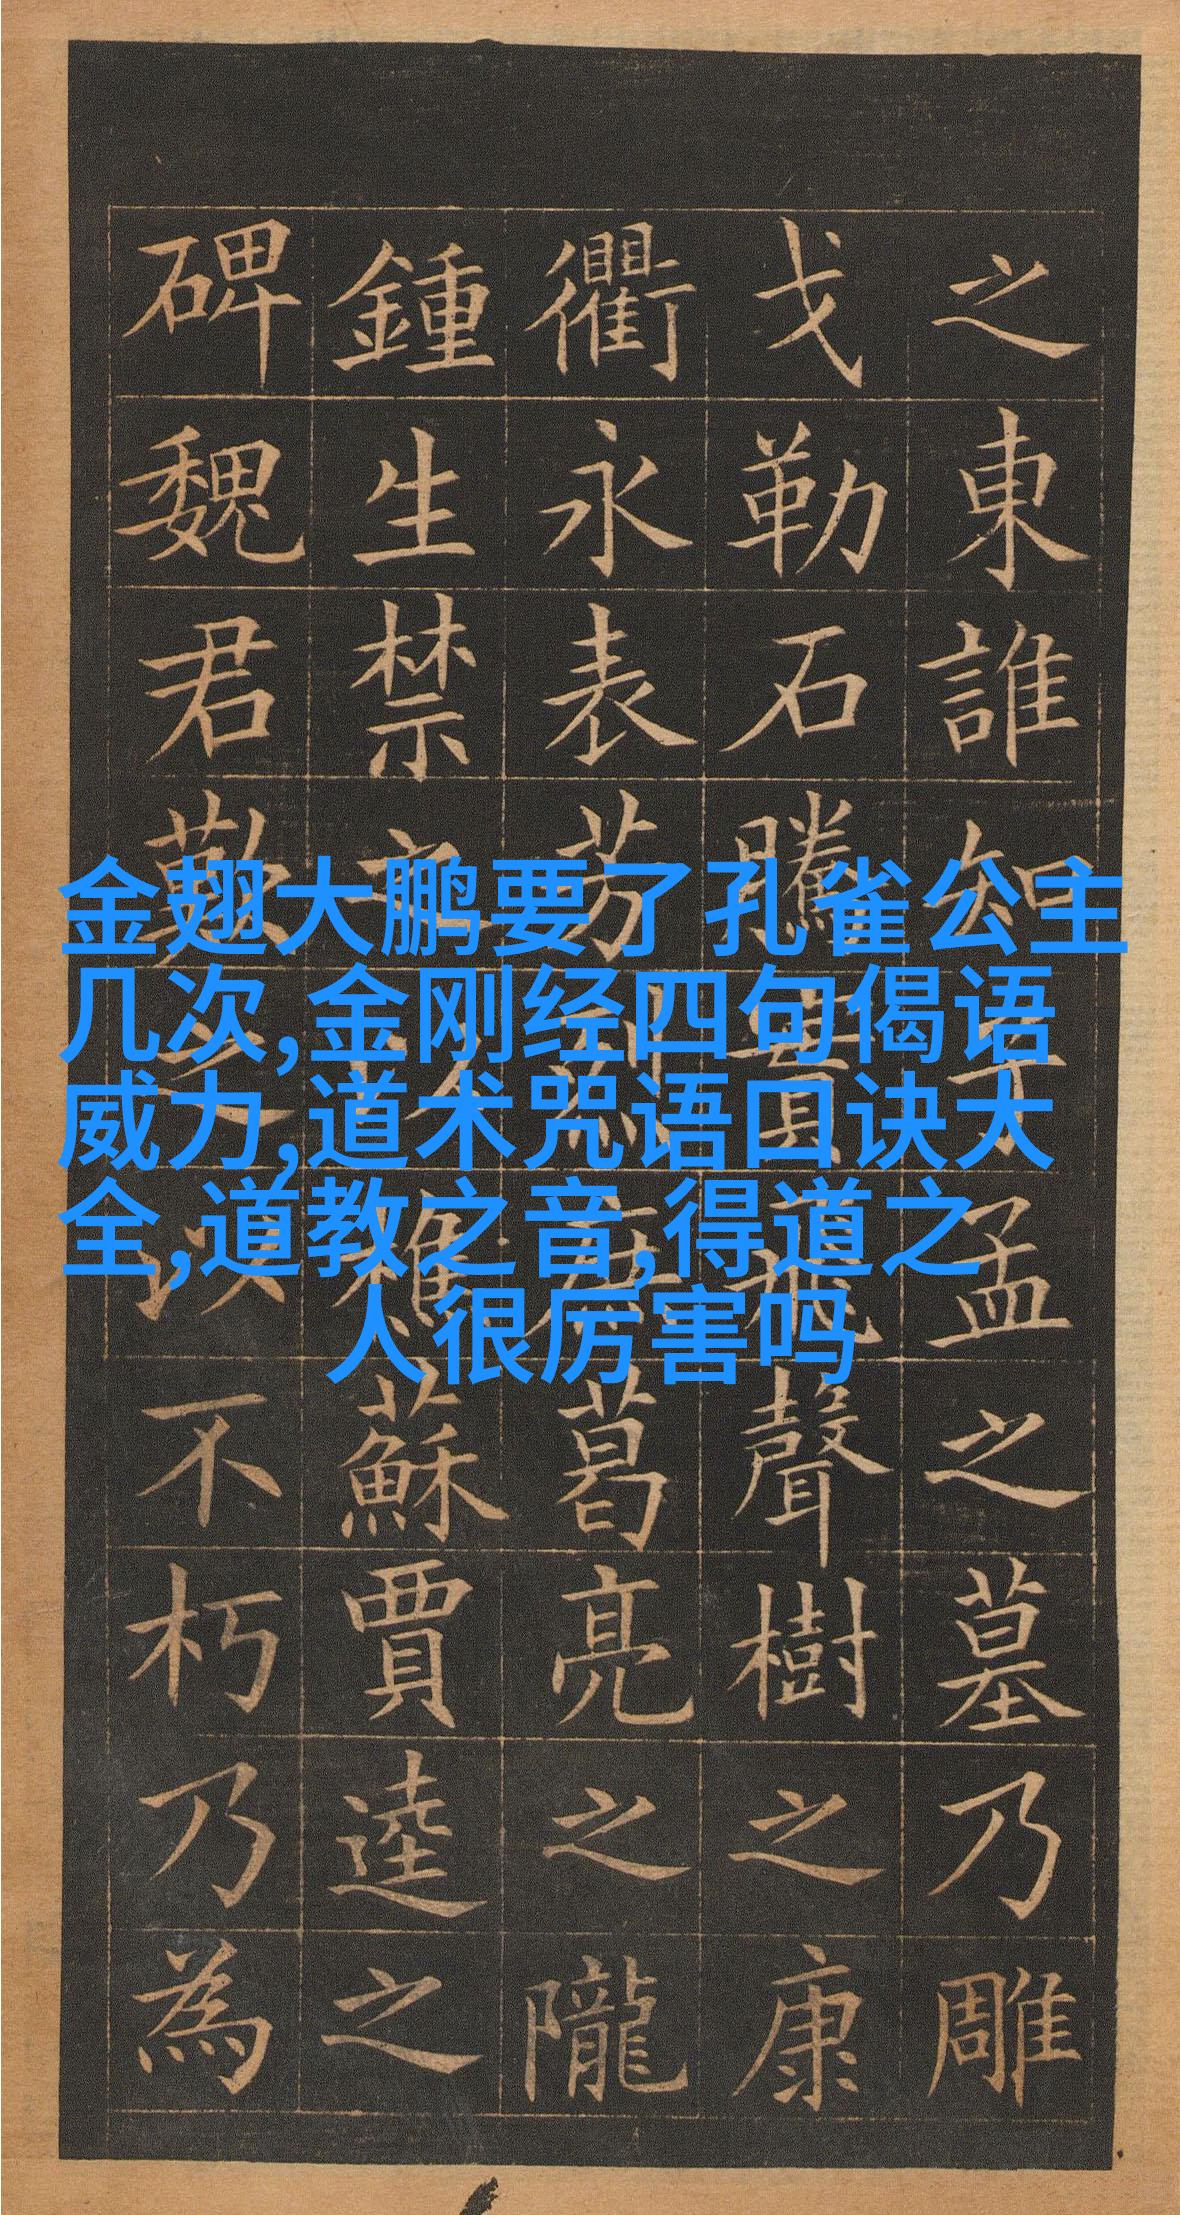 金翅大鹏要了孔雀公主
几次,金刚经四句偈语
威力,道术咒语口诀大
全,道教之音,得道之
人很厉害吗
之東誰知子孟之墓乃雕
戈勒石騰實飛聲樹之康
衢永表芳烈庶葛亮之隴
鍾生禁之以樵蘇賈逵之
碑魏君歎之以不朽乃為